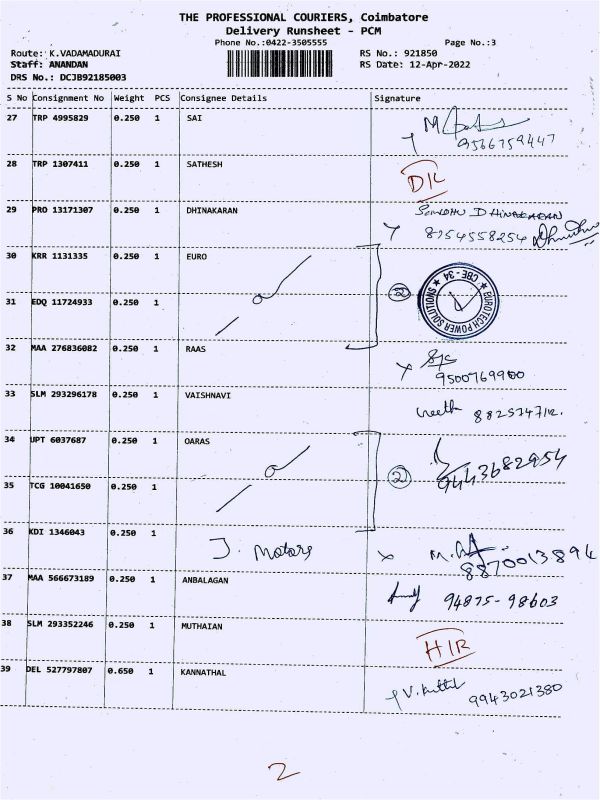 THE PROFESSIONAL COURIERS, Coimbatore
Delivery Runsheet - PCM
Phone No.:0422-3505555 Page No.:3
Route: K.VADAMADURAI RS No.: 921850
Staff: ANANDAN RS Date: 12-Apr-2022
DRS No.: DCJB92185003
S No Consignment No Weight PCS Consignee Details Signature
27 TRP 4995829 0.250 1 SAI
9566759447
28 TRP 1307411 0.250 1 SATHESH
D/L
29 PRO 13171307 0.250 1 DHINAKARAN DHINAKARAN
8754558254
30 KRR 1131335 0.250 1 EURO
2 EUROTECH POWER SOLUTIONS CBE - 34
31 EDQ 11724933 0.250 1
32 MAA 276836082 0.250 1 RAAS
9500769900
33 SLM 293296178 0.250 1 VAISHNAVI
34 UPT 6037687 0.250 1 OARAS
2 9443682954
35 TCG 10041650 0.250 1
36 KDI 1346043 0.250 1 J. Motors
8870013894
37 MAA 566673189 0.250 1 ANBALAGAN
94875-98603
38 SLM 293352246 0.250 1 MUTHAIAN
H/R
39 DEL 527797807 0.650 1 KANNATHAL
9943021380
2